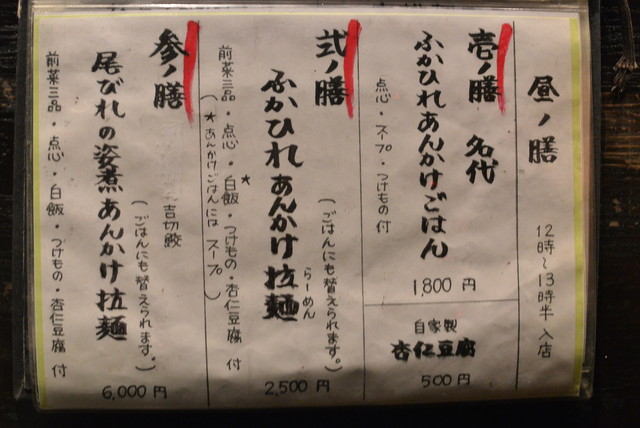 昼ノ膳
12時〜13時半 入店
壱ノ膳 名代
ふかひれあんかけごはん
点心・スープ・つけもの付
1,800 円
自家製
杏仁豆腐
500 円
弐ノ膳
(ごはんにも替えられます。)
らーめん
ふかひれあんかけ拉麺
前菜三品・点心・白飯★・つけもの・杏仁豆腐 付
(★あんかけごはんには スープ)
2,500 円
参ノ膳
吉切鮫
(ごはんにも替えられます。)
尾びれの姿煮あんかけ拉麺
前菜三品・点心・白飯・つけもの・杏仁豆腐 付
6,000 円